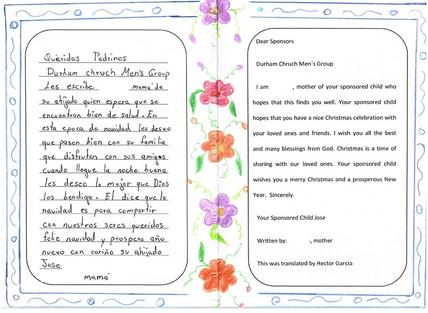 Queridos Padrinos
Durham chruch Men's Group
Les escribe mamá de
su ahijado quien espera que se
encuentran bien de salud. En
esta epoca de navidad les deseo
que pasen bien con su familia
que disfruten con sus amigos
cuando llegue la noche buena
les deseo lo mejor que Dios
los bendiga. El dice que la
navidad es para compartir
con nuestros seres queridos
feliz navidad y prospero año
nuevo con cariño su ahijado
Jose
mamá
Dear Sponsors
Durham Chruch Men´s Group
I am , mother of your sponsored child who
hopes that this finds you well. Your sponsored child
hopes that you have a nice Christmas celebration with
your loved ones and friends. I wish you all the best
and many blessings from God. Christmas is a time of
sharing with our loved ones. Your sponsored child
wishes you a merry Christmas and a prosperous New
Year. Sincerely.
Your Sponsored Child Jose
Written by: , mother
This was translated by Hector Garcia